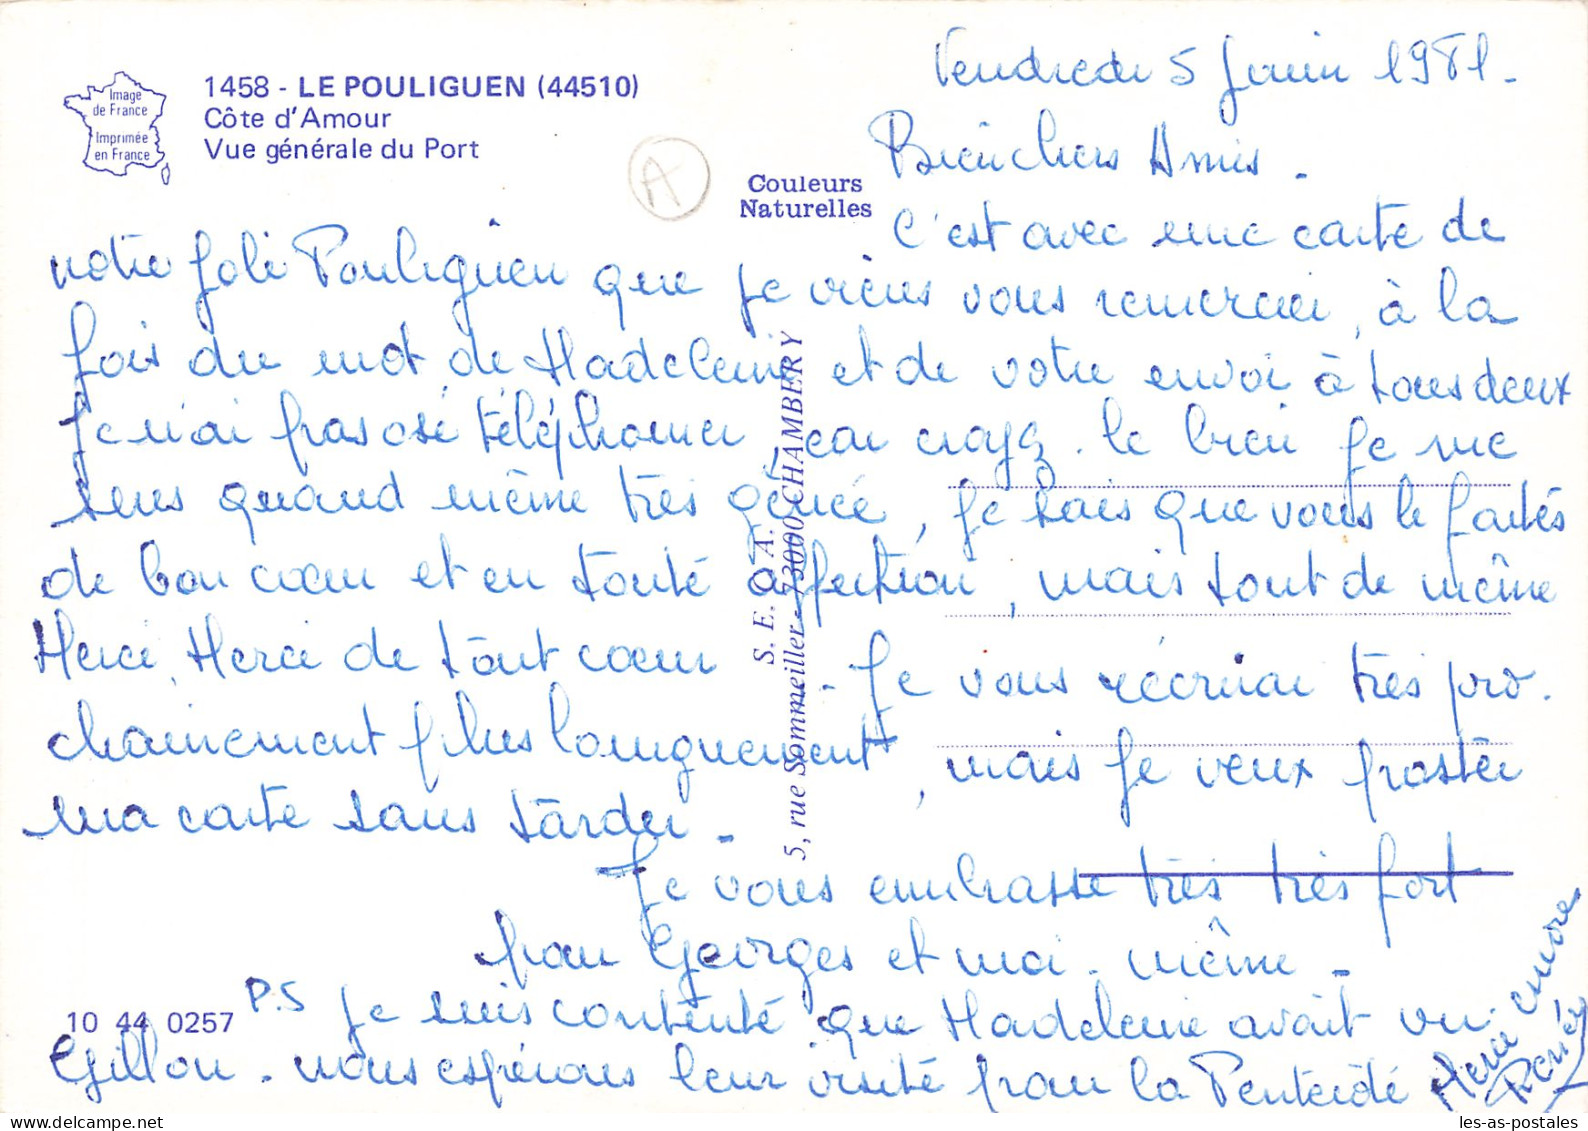 Image
de France
Imprimée
en France
1458 - LE POULIGUEN (44510)
Côte d'Amour
Vue générale du Port
A
Couleurs
Naturelles
Vendredi 5 Juin 1981.
Bien chers Amis.
C'est avec une carte de
notre joli Pouliguen que je viens vous remercier, à la
fois du mot de Madeleine et de votre envoi à tous deux
Je n'ai pas osé téléphoner, car croyez-le bien je me
sens quand même très gênée, je sais que vous le faites
de bon cœur et en toute affection, mais tout de même
Merci, Merci de tout cœur. Je vous récrirai très pro-
chainement plus longuement, mais je veux poster
ma carte sans tarder.
Je vous embrasse très très fort
pour Georges et moi-même.
P.S Je suis contente que Madeleine avait vu
Gillou. nous espérons leur visite pour la Pentecôte
Merci encore
Renée
S. E. O. A.
5, rue Sommeiller - 73000 CHAMBERY
10 44 0257
les-as-postales.com